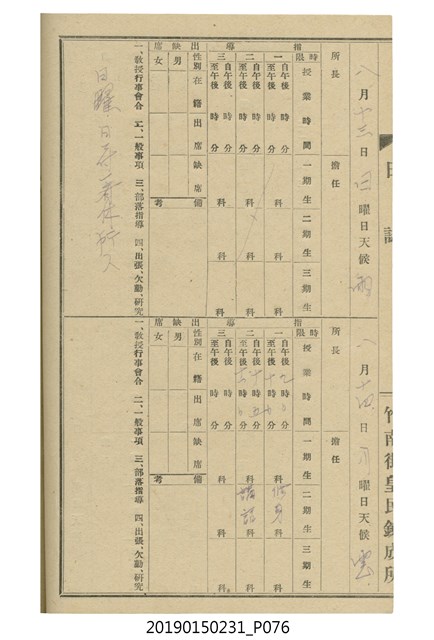 日誌
竹南街皇民鍊成所
八月十三日日曜日天候雨
所長 擔任
指導
時限 授業時間 一期生 二期生 三期生
一 自午後 時 分 至午後 時 分 科 科 科
二 自午後 時 分 至午後 時 分 科 科 科
三 自午後 時 分 至午後 時 分 科 科 科
出缺席
性別 在籍 出席 缺席 備考
男
女
一、教授行事會合 二、一般事項 三、部落指導 四、出張、欠勤、研究
日曜日
八月十四日月曜日天候雲
所長 擔任
指導
時限 授業時間 一期生 二期生 三期生
一 自午後 時 分 至午後 時 分 科 修身科 科
二 自午後 時 分 至午後 時 分 科 講話科 科
三 自午後 時 分 至午後 時 分 科 科 科
出缺席
性別 在籍 出席 缺席 備考
男
女
一、教授行事會合 二、一般事項 三、部落指導 四、出張、欠勤、研究
20190150231_P076